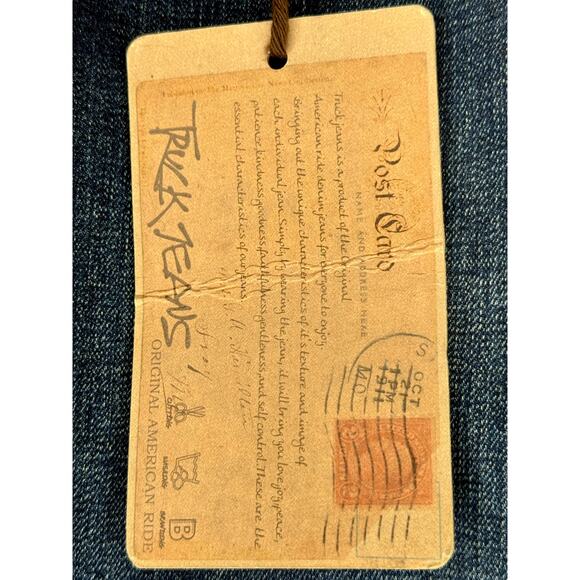 Post Card
NAME AND ADDRESS HERE
Truck jeans is a product of the original
American ride denim jeans for everyone to enjoy.
Bringing out the unique characteristics of it's texture and image of
each individual jean. Simply by wearing the jean, it will bring you love, joy, peace,
patience, kindness, goodness, faithfulness, gentleness, and self control. These are the
essential characteristics of our jeans
TRUCK JEANS
ORIGINAL AMERICAN RIDE
OCT
21
1 PM
1911
MO.
B